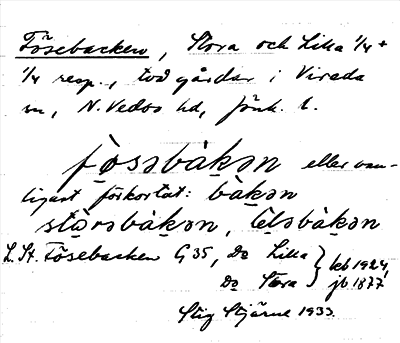 Fösebacken, Stora och Lilla 1/4 +
1/4 resp., två gårdar i Vireda
sn, N. Vedbo hd, Jönk. l.
fössbàkən eller van-
ligast förkortat: bàkən
störsbàkən, lélsbàkən
L. St. Fösebacken G 35, Do Lilla } kb 1924,
Do Stora } jb 1877
Stig Stjärne 1933.